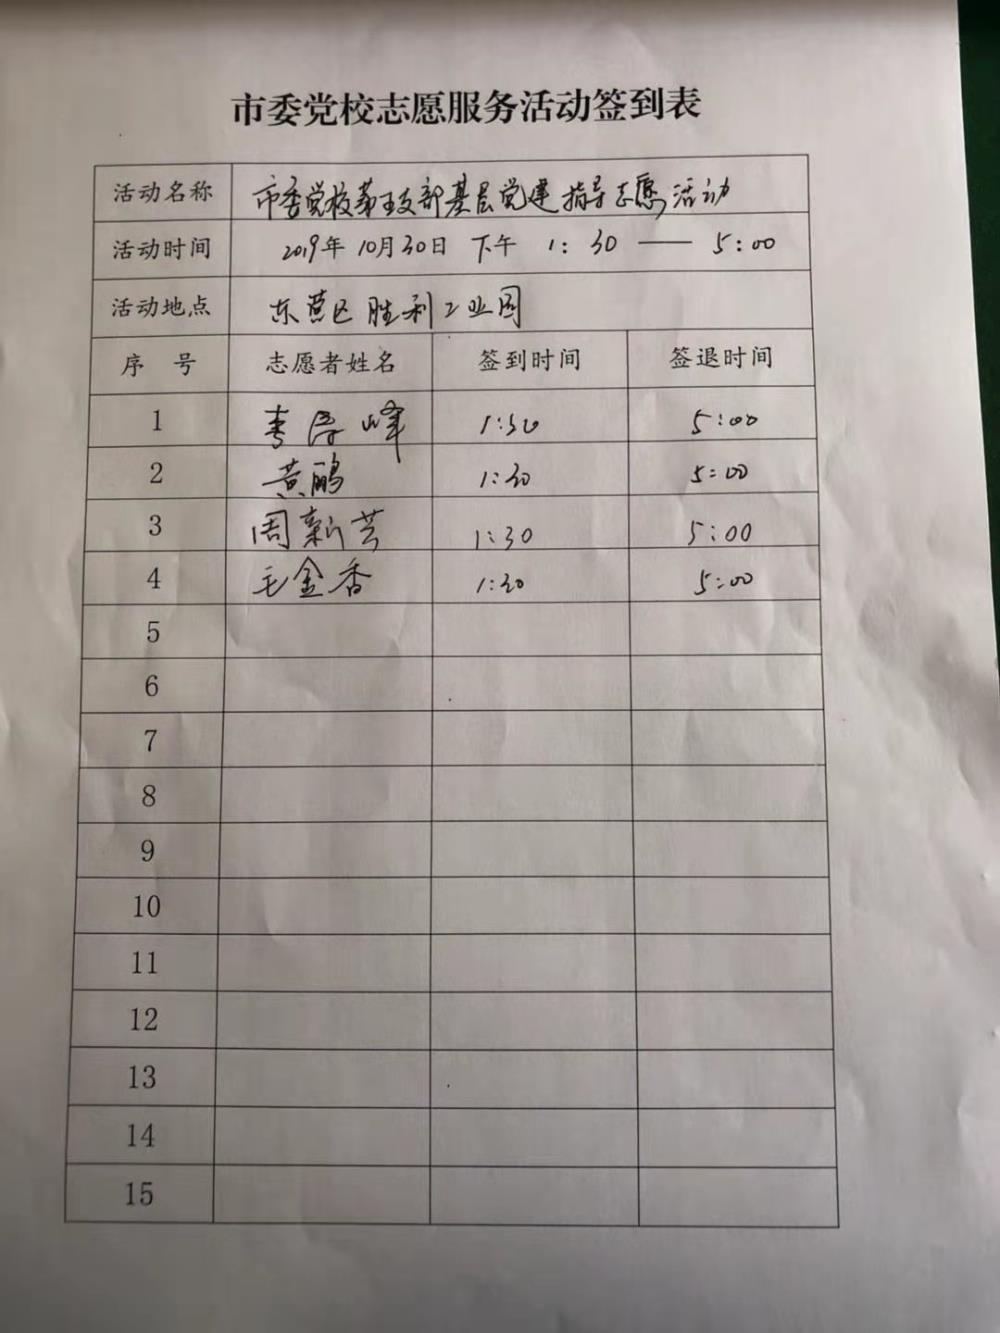 市委党校志愿服务活动签到表
活动名称 市委党校第五支部基层党建指导志愿活动
活动时间 2019年10月30日 下午 1:30 —— 5:00
活动地点 东营区胜利工业园
序 号 志愿者姓名 签到时间 签退时间
1 李 峰 1:30 5:00
2 黄鹂 1:30 5:00
3 周新芸 1:30 5:00
4 毛金香 1:30 5:00
5
6
7
8
9
10
11
12
13
14
15